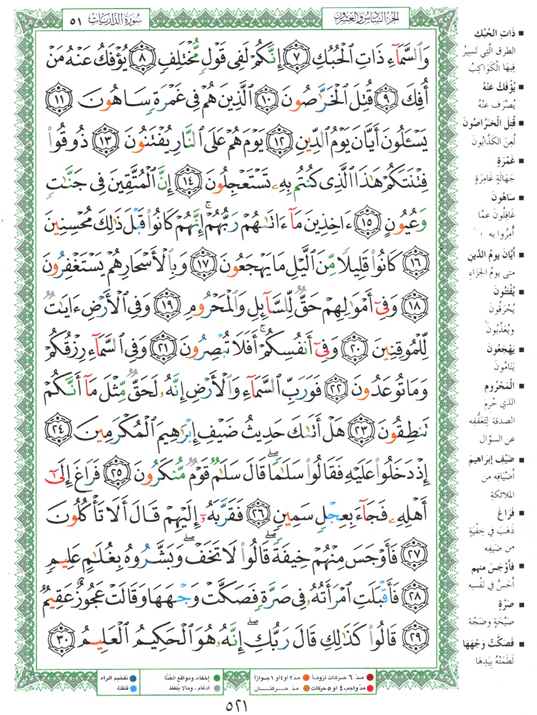 سورة الذاريات ٥١
الجزء السادس والعشرون
وَالسَّمَاءِ ذَاتِ الْحُبُكِ ٧ إِنَّكُمْ لَفِي قَوْلٍ مُّخْتَلِفٍ ٨ يُؤْفَكُ عَنْهُ مَنْ
أُفِكَ ٩ قُتِلَ الْخَرَّاصُونَ ١٠ الَّذِينَ هُمْ فِي غَمْرَةٍ سَاهُونَ ١١
يَسْـَٔلُونَ أَيَّانَ يَوْمُ الدِّينِ ١٢ يَوْمَ هُمْ عَلَى النَّارِ يُفْتَنُونَ ١٣ ذُوقُوا
فِتْنَتَكُمْ هَٰذَا الَّذِي كُنتُم بِهِ تَسْتَعْجِلُونَ ١٤ إِنَّ الْمُتَّقِينَ فِي جَنَّٰتٍ
وَعُيُونٍ ١٥ ءَاخِذِينَ مَا ءَاتَىٰهُمْ رَبُّهُمْ إِنَّهُمْ كَانُوا قَبْلَ ذَٰلِكَ مُحْسِنِينَ
١٦ كَانُوا قَلِيلًا مِّنَ اللَّيْلِ مَا يَهْجَعُونَ ١٧ وَبِالْأَسْحَارِ هُمْ يَسْتَغْفِرُونَ
١٨ وَفِي أَمْوَٰلِهِمْ حَقٌّ لِّلسَّائِلِ وَالْمَحْرُومِ ١٩ وَفِي الْأَرْضِ ءَايَٰتٌ
لِّلْمُوقِنِينَ ٢٠ وَفِي أَنفُسِكُمْ أَفَلَا تُبْصِرُونَ ٢١ وَفِي السَّمَاءِ رِزْقُكُمْ
وَمَا تُوعَدُونَ ٢٢ فَوَرَبِّ السَّمَاءِ وَالْأَرْضِ إِنَّهُ لَحَقٌّ مِّثْلَ مَا أَنَّكُمْ
تَنطِقُونَ ٢٣ هَلْ أَتَىٰكَ حَدِيثُ ضَيْفِ إِبْرَٰهِيمَ الْمُكْرَمِينَ ٢٤
إِذْ دَخَلُوا عَلَيْهِ فَقَالُوا سَلَٰمًا قَالَ سَلَٰمٌ قَوْمٌ مُّنكَرُونَ ٢٥ فَرَاغَ إِلَىٰ
أَهْلِهِ فَجَاءَ بِعِجْلٍ سَمِينٍ ٢٦ فَقَرَّبَهُ إِلَيْهِمْ قَالَ أَلَا تَأْكُلُونَ
٢٧ فَأَوْجَسَ مِنْهُمْ خِيفَةً قَالُوا لَا تَخَفْ وَبَشَّرُوهُ بِغُلَٰمٍ عَلِيمٍ
٢٨ فَأَقْبَلَتِ امْرَأَتُهُ فِي صَرَّةٍ فَصَكَّتْ وَجْهَهَا وَقَالَتْ عَجُوزٌ عَقِيمٌ
٢٩ قَالُوا كَذَٰلِكِ قَالَ رَبُّكِ إِنَّهُ هُوَ الْحَكِيمُ الْعَلِيمُ ٣٠
ذَاتِ الْحُبُكِ
الطرق الَّتي تَسيرُ
فِيهَا الْكَوَاكِبُ
يُؤْفَكُ عَنْهُ
يُصْرَف عَنْهُ
قُتِلَ الْخَرَّاصُونَ
لُعِنَ الْكَذَّابُونَ
غَمْرَةٍ
جَهَالَةٍ غَامِرَةٍ
سَاهُونَ
غَافِلُونَ عمَّا
أُمِرُوا به
أَيَّانَ يومُ الدِّينِ
متى يومُ الجَزاءِ
يُفْتَنُونَ
يُحْرَقُونَ
و يُعَذَّبُونَ
يَهْجَعُونَ
يَنَامُونَ
الْمَحْرُومِ
الذي حُرِمَ
الصدقة لِتَعَفُّفِه
عن السؤالِ
ضَيْفِ إبراهيمَ
أضْيَافِه من
الملائكةِ
فَرَاغَ
ذهَبَ في خِفْيَةٍ
من ضَيفِه
فأوْجَسَ منهم
أحَسَّ في نَفْسِه
صَرَّةٍ
صَيْحَةٍ وضَجَّة
فَصَكَّتْ وَجْهَهَا
لَطَمَتْهُ بِيَدِهَا
مدّ ٦ حركات لزوماً
مدّ ٢ أو ٤ أو ٦ جوازاً
إخفاء، ومواقع الغنّة
تفخيم الراء
مدّ واجب ٤ أو ٥ حركات
مدّ حركتان
ادغام، وما لا يُلفظ
قلقلة
٥٢١